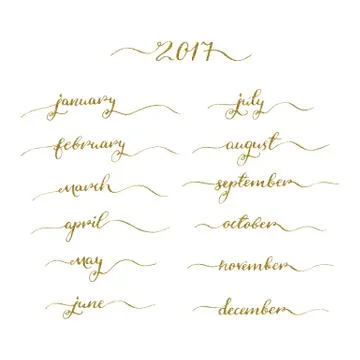 2017
january
february
march
april
may
june
july
august
september
october
november
december